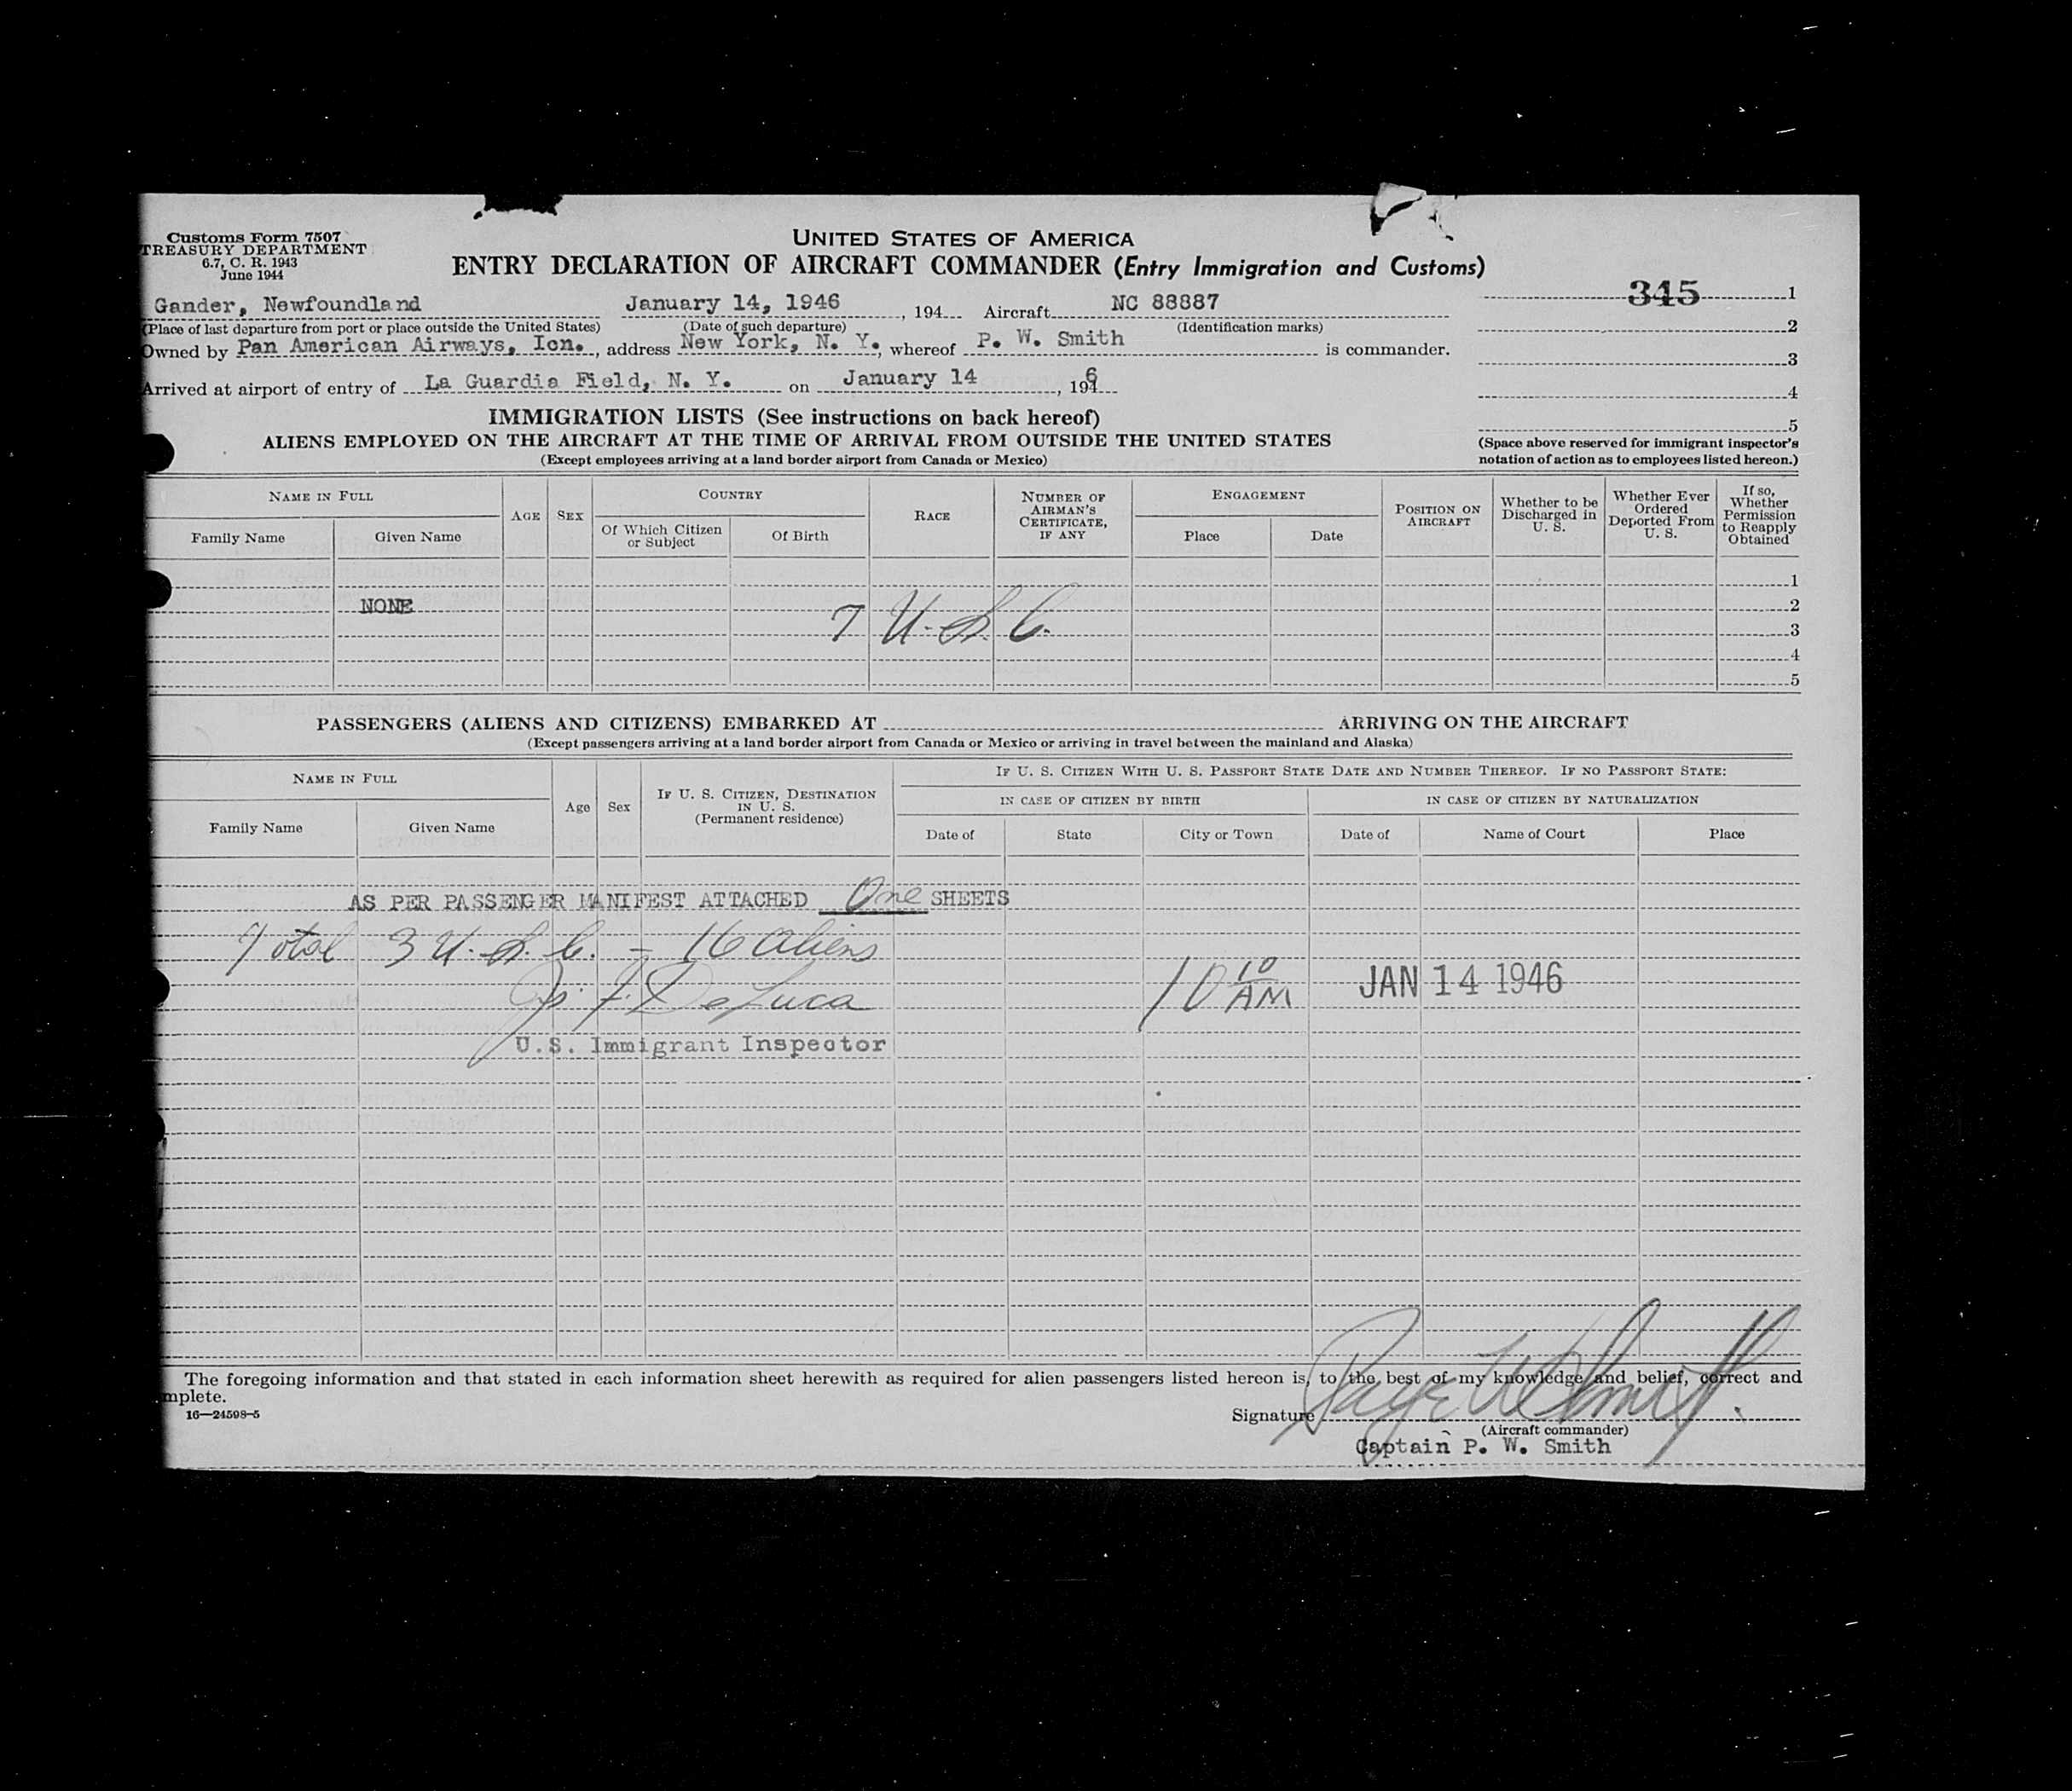 Customs Form 7507
TREASURY DEPARTMENT
6.7, C. R. 1943
June 1944
UNITED STATES OF AMERICA
ENTRY DECLARATION OF AIRCRAFT COMMANDER (Entry Immigration and Customs)
345 1
Gander, Newfoundland January 14, 1946, 194 Aircraft NC 88887
(Place of last departure from port or place outside the United States) (Date of such departure) (Identification marks)
2
Owned by Pan American Airways, Icn., address New York, N. Y., whereof P. W. Smith is commander.
3
Arrived at airport of entry of La Guardia Field, N. Y. on January 14, 1946
4
IMMIGRATION LISTS (See instructions on back hereof)
5
ALIENS EMPLOYED ON THE AIRCRAFT AT THE TIME OF ARRIVAL FROM OUTSIDE THE UNITED STATES
(Except employees arriving at a land border airport from Canada or Mexico)
(Space above reserved for immigrant inspector's
notation of action as to employees listed hereon.)
NAME IN FULL
Family Name
Given Name
AGE
SEX
COUNTRY
Of Which Citizen
or Subject
Of Birth
RACE
NUMBER OF
AIRMAN'S
CERTIFICATE,
IF ANY
ENGAGEMENT
Place
Date
POSITION ON
AIRCRAFT
Whether to be
Discharged in
U. S.
Whether Ever
Ordered
Deported From
U. S.
If so,
Whether
Permission
to Reapply
Obtained
1
NONE 2
7 U. S. C. 3
4
5
PASSENGERS (ALIENS AND CITIZENS) EMBARKED AT ARRIVING ON THE AIRCRAFT
(Except passengers arriving at a land border airport from Canada or Mexico or arriving in travel between the mainland and Alaska)
NAME IN FULL
Family Name
Given Name
Age
Sex
IF U. S. CITIZEN, DESTINATION
IN U. S.
(Permanent residence)
IF U. S. CITIZEN WITH U. S. PASSPORT STATE DATE AND NUMBER THEREOF. IF NO PASSPORT STATE:
IN CASE OF CITIZEN BY BIRTH
Date of
State
City or Town
IN CASE OF CITIZEN BY NATURALIZATION
Date of
Name of Court
Place
AS PER PASSENGER MANIFEST ATTACHED One SHEETS
Total 3 U. S. C. - 16 Aliens
J. DeLuca 10 10 AM JAN 14 1946
U.S. Immigrant Inspector
The foregoing information and that stated in each information sheet herewith as required for alien passengers listed hereon is, to the best of my knowledge and belief, correct and
mplete.
16—24598-5
Signature Paige W Smith.
(Aircraft commander)
Captain P. W. Smith